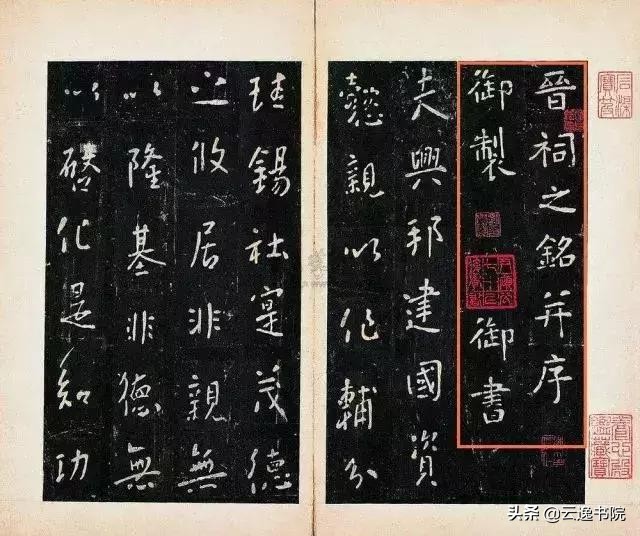 晉祠之銘并序
御製 御書
夫興邦建國資
懿親以作輔分
珪錫社寔茂德
之攸居非親無
以隆基非德無
以啓化是知功
头条 @云逸书院